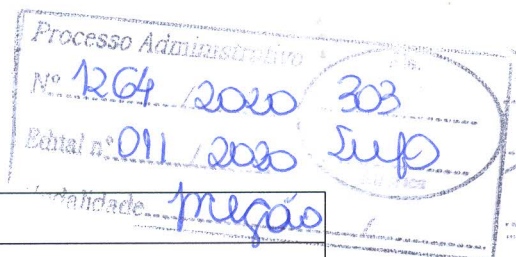 Processo Administrativo Fls.
Nº 1264 / 2020 303
Edital nº 011 / 2020
Modalidade pregão /